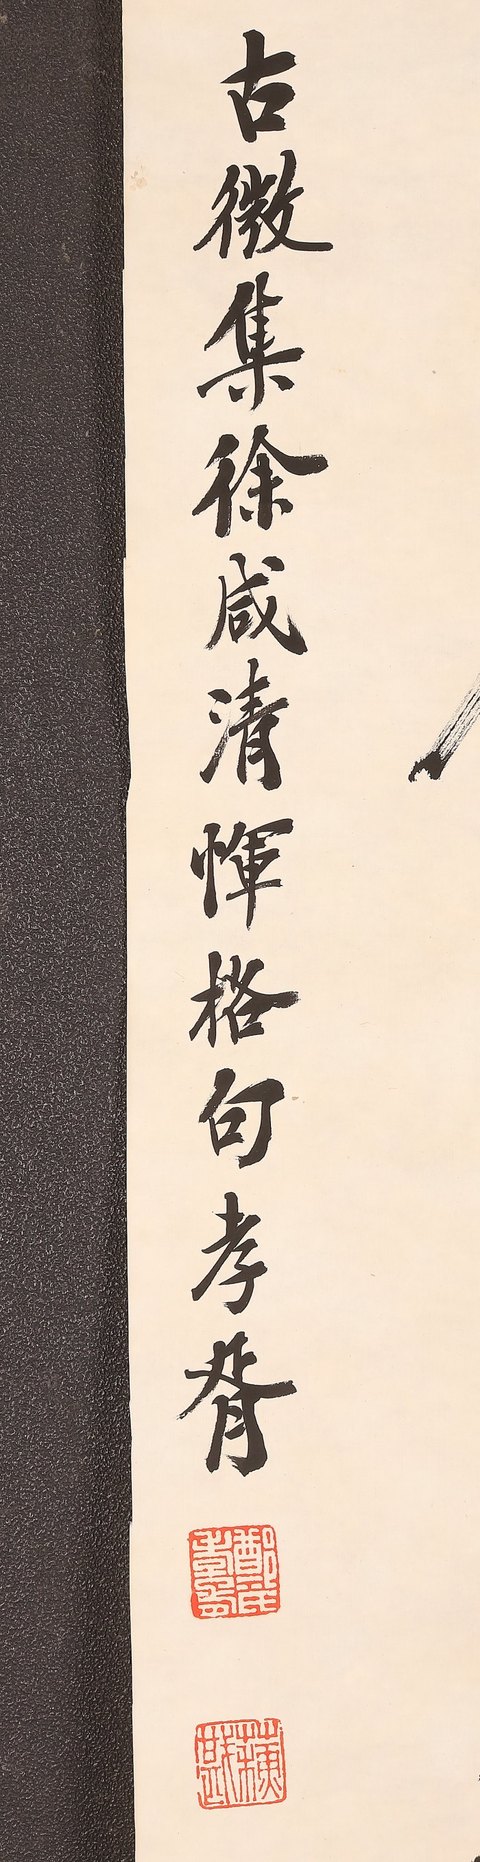 古微集徐咸清惲格句孝胥